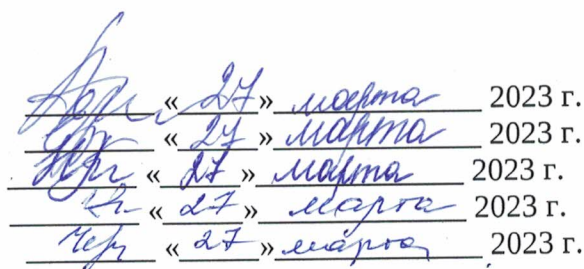 « 27 » марта 2023 г.
« 27 » марта 2023 г.
« 27 » марта 2023 г.
« 27 » марта 2023 г.
« 27 » марта 2023 г.